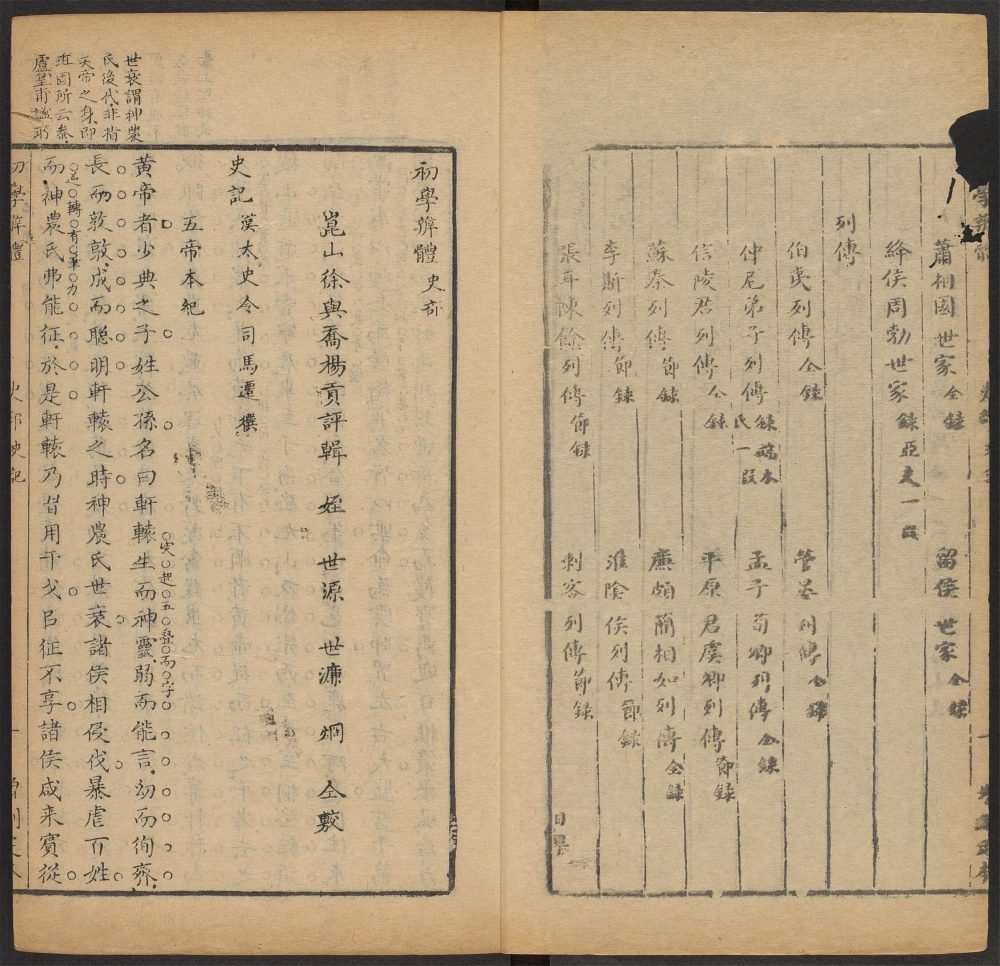 蕭相國世家全錄 留侯世家全錄
絳侯周勃世家錄亞夫一段
列傳
伯夷列傳全錄 管晏列傳全錄
仲尼弟子列傳錄端木氏一段 孟子荀卿列傳全錄
信陵君列傳全錄 平原君虞卿列傳節錄
蘇秦列傳節錄 廉頗藺相如列傳全錄
李斯列傳節錄 淮陰侯列傳節錄
張耳陳餘列傳節錄 刺客列傳節錄
目錄
初學辨體 史部
崑山徐與喬揚貢評輯 姪 世源 世濂 炯 仝數
史記 漢太史令司馬遷 撰
五帝本紀
世衰謂神農
氏後代非指
炎帝之身即
班固所云參
盧皇甫謐所
黃帝者少典之子姓公孫名曰軒轅生而神靈弱而能言幼而徇齊
突起五疊而字
長而敦敏成而聰明軒轅之時神農氏世衰諸侯相侵伐暴虐百姓
而神農氏弗能征於是軒轅乃習用干戈㠯征不享諸侯咸來賓從
轉有筆力
初學辨體 史部史記 一